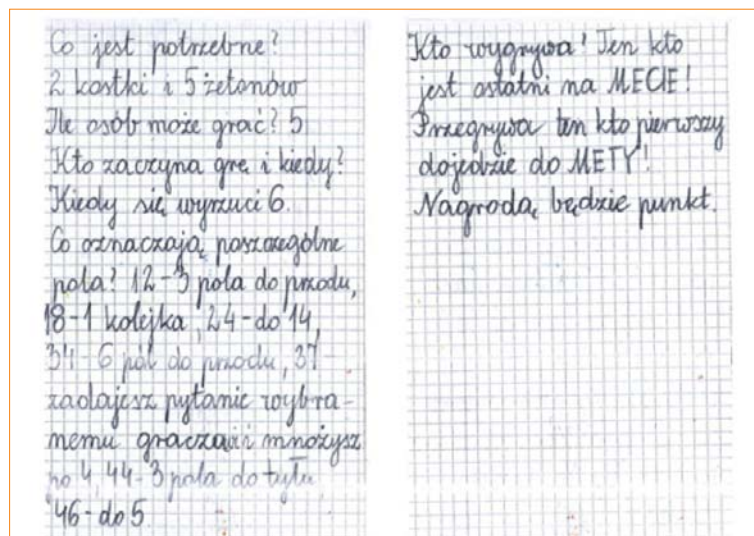 Co jest potrzebne?
2 kostki i 5 żetonów
Ile osób może grać? 5
Kto zaczyna grę i kiedy?
Kiedy się wyrzuci 6.
Co oznaczają poszczególne
pola? 12-3 pola do przodu,
18-1 kolejka, 24-do 14,
34-6 pól do przodu, 37-
zadajesz pytanie wybra-
nemu graczowi mnożysz
po 4, 44-3 pola do tyłu,
46-do 5
Kto wygrywa? Ten kto
jest ostatni na MECIE!
Przegrywa ten kto pierwszy
dojedzie do METY!
Nagrodą będzie punkt.